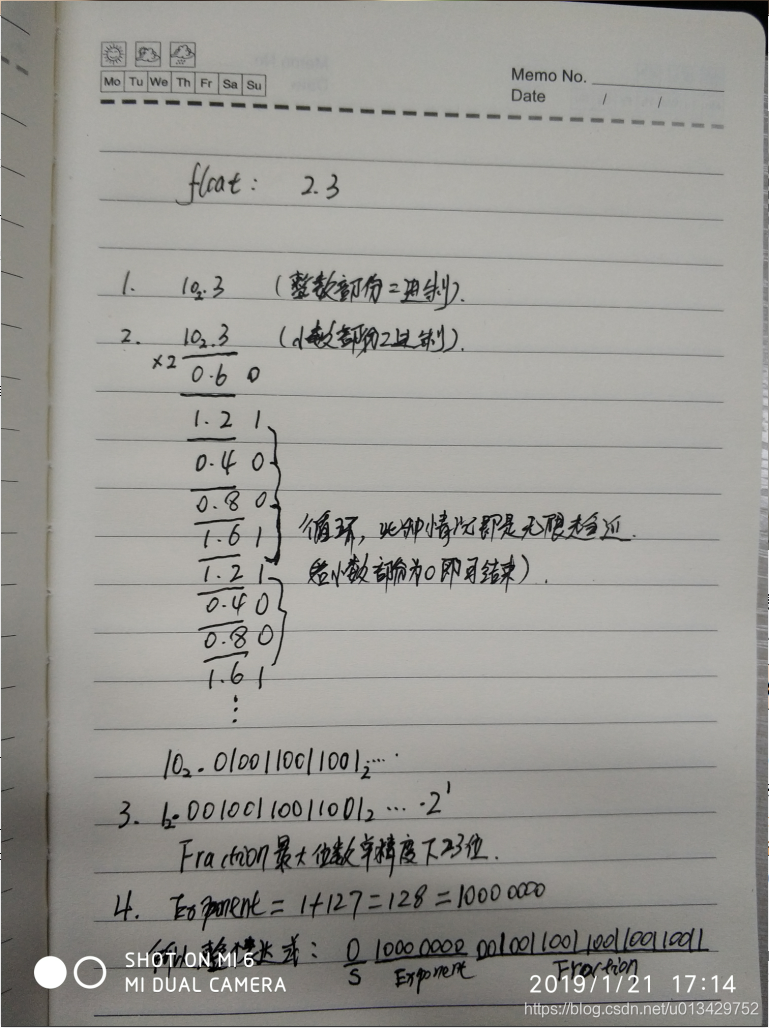 Mo Tu We Th Fr Sa Su
Memo No.
Date / /
float: 2.3
1. 10₂.3 (整数部份二进制).
2. 10₂.3 (小数部份二进制).
×2
0.6 0
1.2 1
0.4 0
0.8 0
1.6 1
循环, 此种情况即是无限趋近
小数部份为0即可结束).
1.2 1
0.4 0
0.8 0
1.6 1
⋮
10₂.0100110011001₂...
3. 1₂.00100110011001₂ ... ·2¹
Fraction最大位数单精度下23位.
4. Exponent = 1+127 = 128 = 10000000
所以整体表达式: 0 10000000 00100110011001100110011
S Exponent Fraction
SHOT ON MI 6
MI DUAL CAMERA
2019/1/21 17:14
https://blog.csdn.net/u013429752